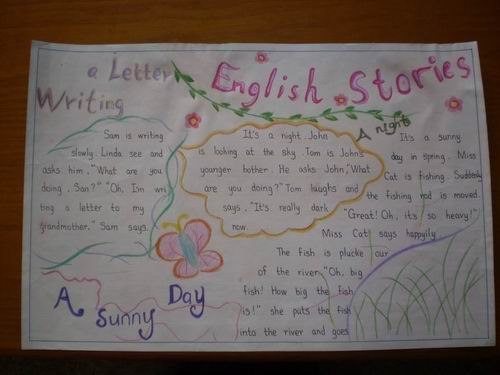 English Stories
a Letter
Writing
Sam is writing
slowly. Linda see and
asks him. "What are you
doing. San?" "Oh, Im wri
ting a letter to my
grandmother." Sam says.
A night
It's a night. John
is looking at the sky. Tom is John's
younger bother. He asks John, "What
are you doing?" Tom laughs and
says. "It's really dark
now.
A
Sunny
Day
It's a sunny
day in spring. Miss
Cat is fishing. Suddenly
the fishing rod is moved.
"Great! Oh, it's so heavy!"
Miss Cat says happily
The fish is plucke our
of the river. "Oh, big
fish! How big the fish
is!" she puts the fish
into the river and goes